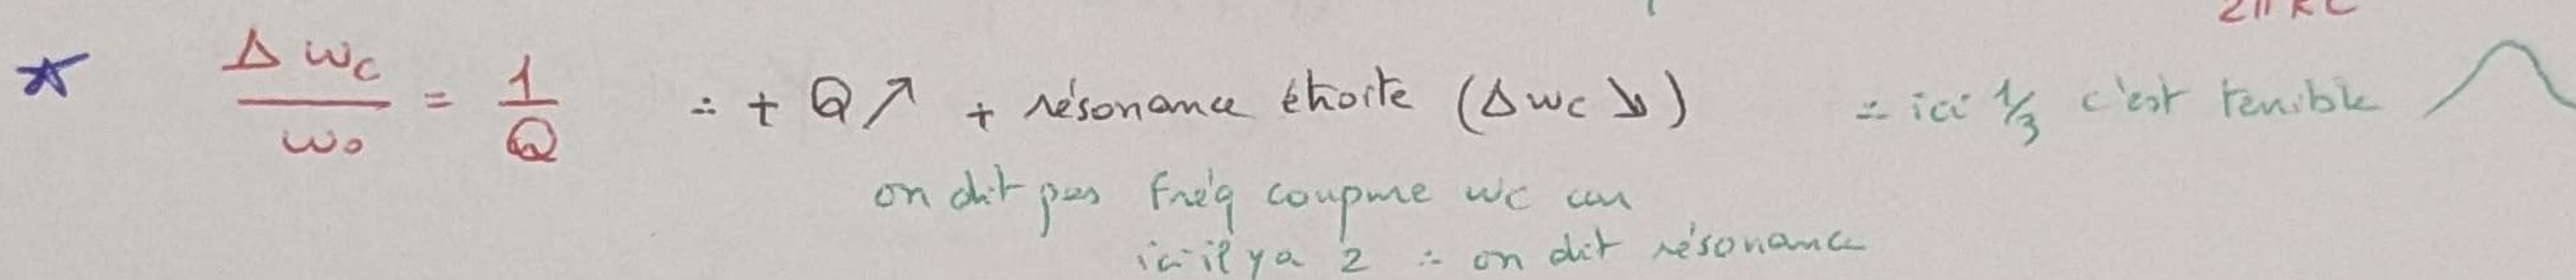 2π RC
☆ Δωc/ω₀ = 1/Q ∴ + Q ↗ + résonance étroite (Δωc ↘) ∴ ici 1/3 c'est terrible
on dit pas fréq coupure ωc car
ici il y a 2 ∴ on dit résonance